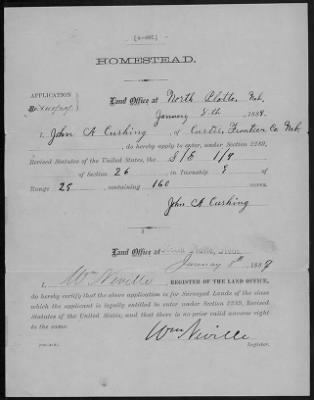 HOMESTEAD.
APPLICATION
Land Office at North Platte, Neb.
January 8th 1889.
I, John A Cushing, of Curtis, Frontier Co Neb,
, do hereby apply to enter, under Section 2289,
Revised Statutes of the United States, the S/E 1/4
of Section 26 in Township 8 of
Range 28, containing 160 acres.
John A Cushing
Land Office at North Platte, Neb.
January 8th 1889
I, Wm Neville REGISTER OF THE LAND OFFICE,
do hereby certify that the above application is for Surveyed Lands of the class
which the applicant is legally entitled to enter under Section 2289, Revised
Statutes of the United States, and that there is no prior valid adverse right
to the same.
Wm Neville
Register.